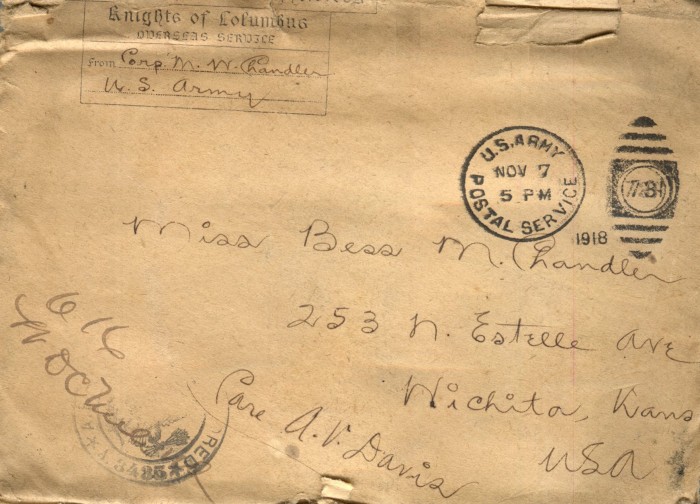 Knights of Columbus
OVERSEAS SERVICE
From Corp. M. W. Chandler
U. S. Army
U.S. ARMY
POSTAL SERVICE
NOV 7
5 PM
1918
Miss Bess M. Chandler
253 N. Estelle Ave
Wichita, Kans
USA
Care A. V. Davis
616
A.3425
RED